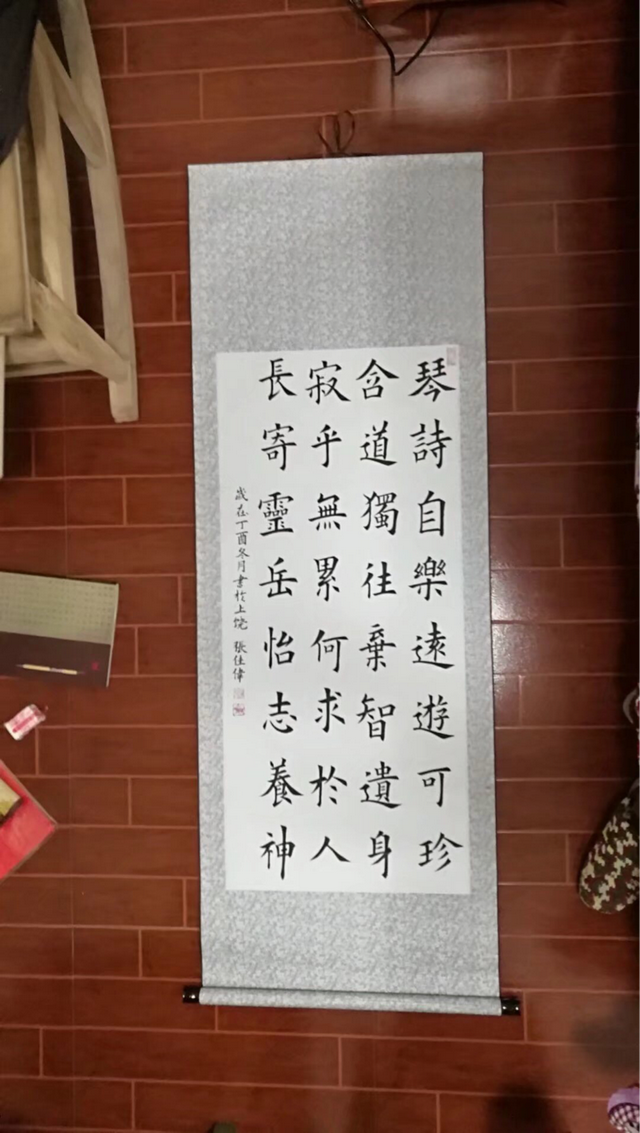 琴詩自樂遠遊可珍
含道獨往棄智遺身
寂乎無累何求於人
長寄靈岳怡志養神
歲在丁酉冬月書於上悅 張佳偉